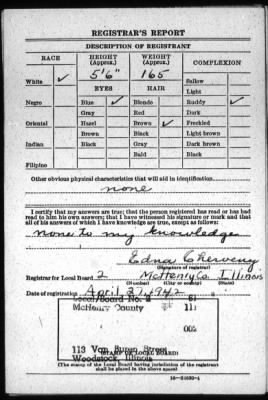 REGISTRAR'S REPORT
DESCRIPTION OF REGISTRANT
RACE HEIGHT (Approx.) WEIGHT (Approx.) COMPLEXION
White ✓ 5'6" 165 Sallow
EYES HAIR Light
Negro Blue ✓ Blonde Ruddy ✓
Gray Red Dark
Oriental Hazel Brown ✓ Freckled
Brown Black Light brown
Indian Black Gray Dark brown
Bald Black
Filipino
Other obvious physical characteristics that will aid in identification
none
I certify that my answers are true; that the person registered has read or has had
read to him his own answers; that I have witnessed his signature or mark and that
all of his answers of which I have knowledge are true, except as follows:
none to my knowledge
Edna Cherveny
(Signature of registrar)
Registrar for Local Board 2 McHenry Co. Illinois
(Number) (City or county) (State)
Date of registration April 27, 1942
Local Board No. 2 61
McHenry County 111
002
113 Van Buren Street
Woodstock, Illinois
(STAMP OF LOCAL BOARD)
(The stamp of the Local Board having jurisdiction of the registrant
shall be placed in the above space)
16-21630-1